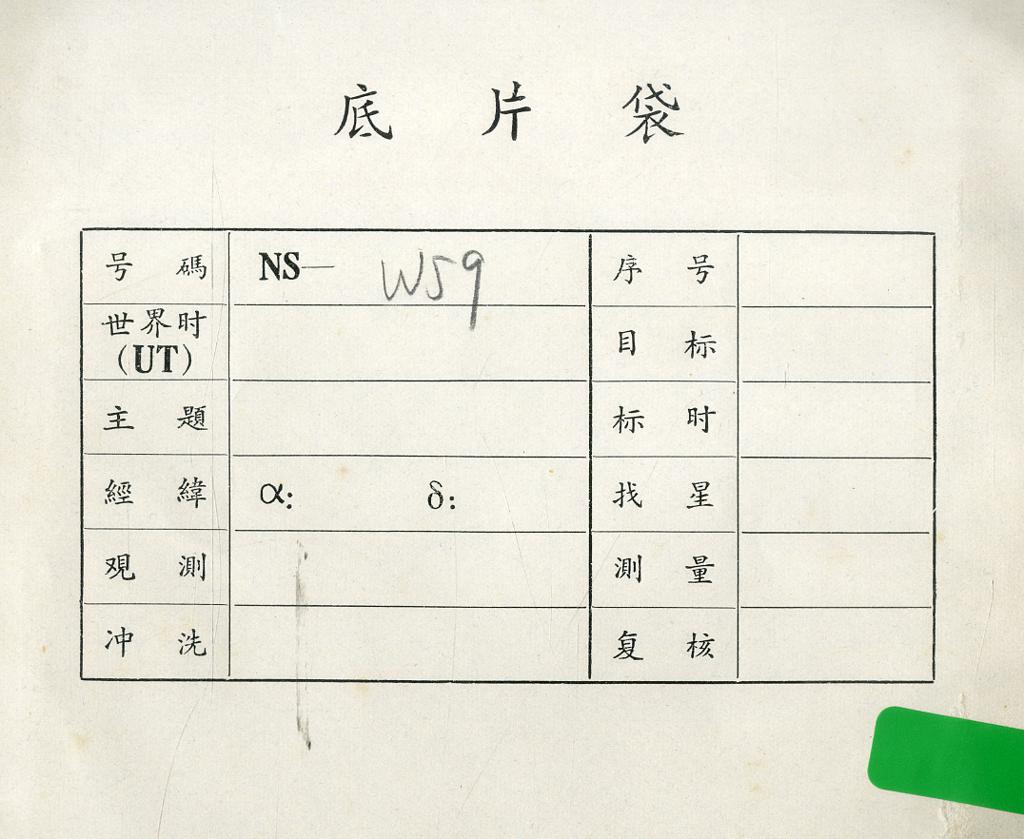 底片袋
号碼 NS— W59 序号
世界时 (UT) 目标
主題 标时
經緯 α: δ: 找星
观測 測量
冲洗 复核